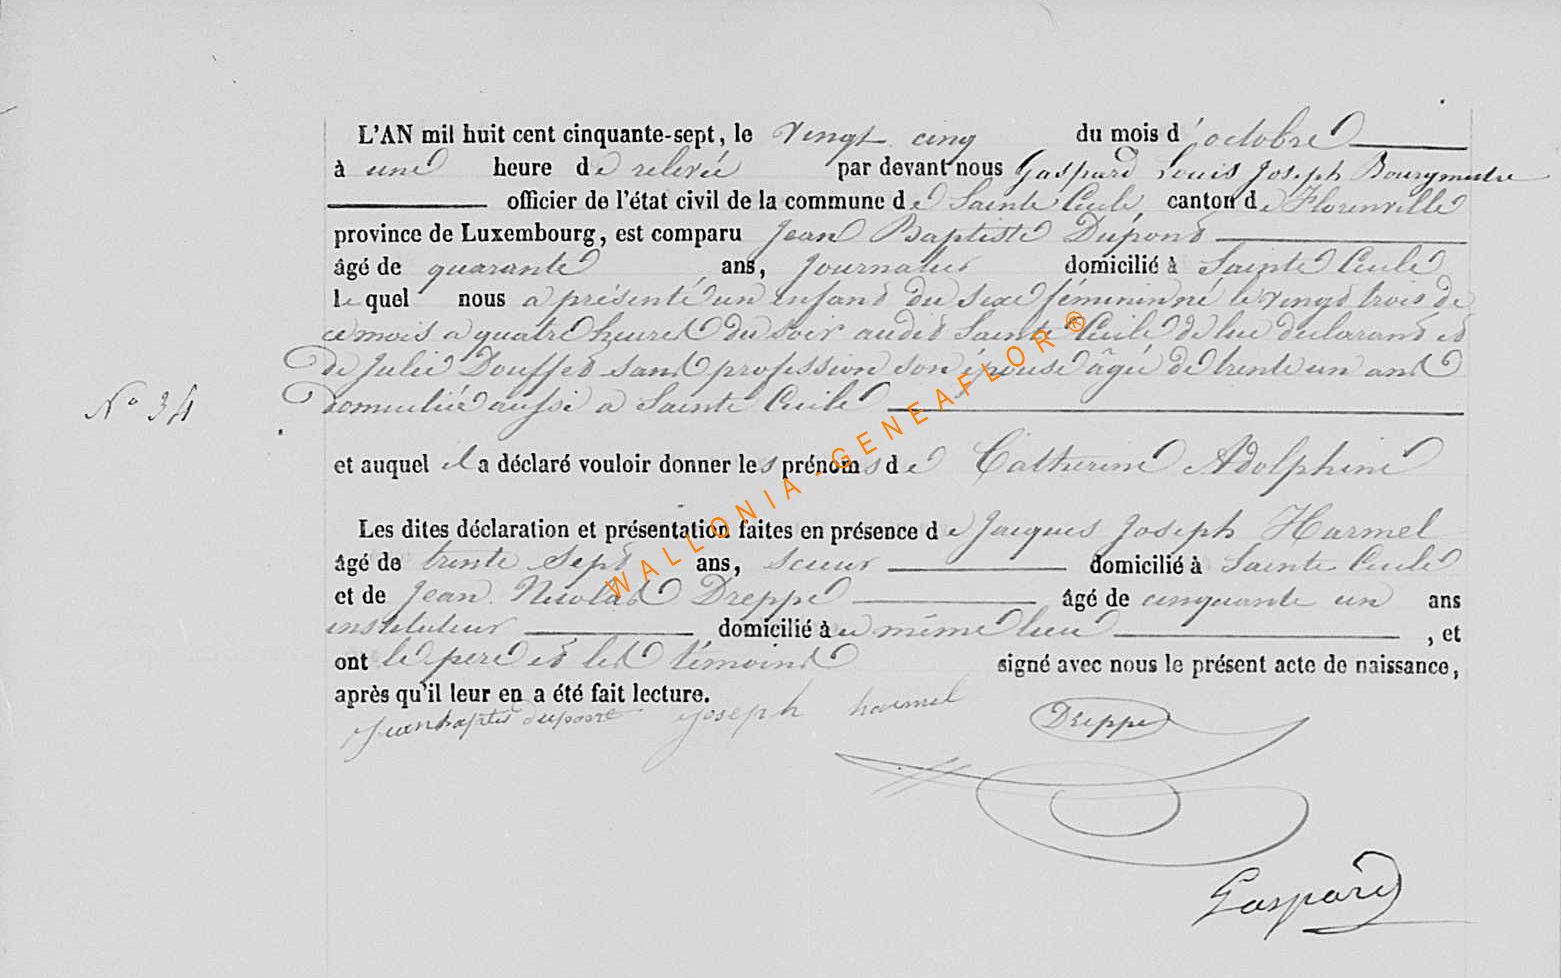 L'AN mil huit cent cinquante-sept, le vingt cinq du mois d'octobre
à une heure de relevée par devant nous Gaspard Louis Joseph Bourgmestre
officier de l'état civil de la commune de Sainte Cécile canton de Florenville
province de Luxembourg, est comparu Jean Baptiste Dupont
âgé de quarante ans, journalier domicilié à Sainte Cécile
lequel nous a présenté un enfant du sexe féminin né le vingt trois de
ce mois a quatre heures du soir audit Sainte Cécile de lui déclarant et
de Julie Douffet sans profession son épouse âgée de trente un ans
domiciliée aussi a Sainte Cécile
N° 34
et auquel il a déclaré vouloir donner les prénoms de Catherine Adolphine
Les dites déclaration et présentation faites en présence de Jacques Joseph Harmel
âgé de trente sept ans, scieur domicilié à Sainte Cécile
et de Jean Nicolas Dreppe âgé de cinquante un ans
instituteur domicilié à u même lieu , et
ont le père et les témoins signé avec nous le présent acte de naissance,
après qu'il leur en a été fait lecture.
Jeanbaptis dupont joseph harmel Dreppe
Gaspard
WALLONIA-GENEAFLOR®